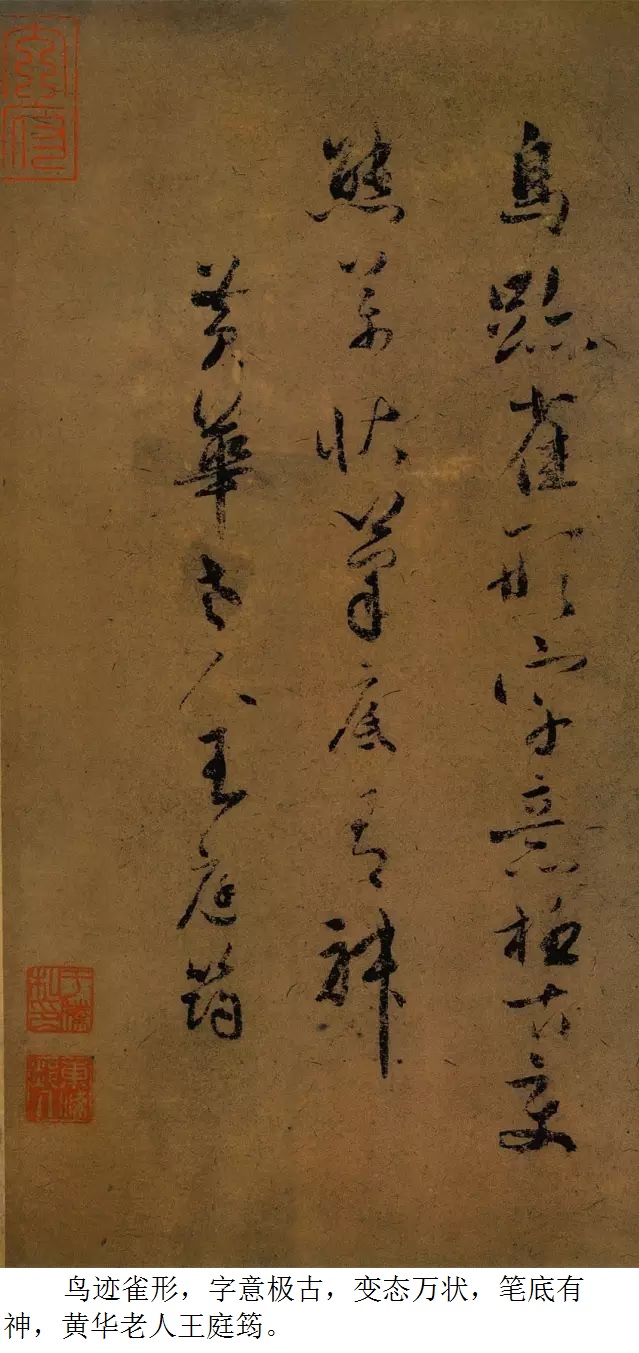 鳥跡雀形字意極古變
態萬狀筆底有神
黃華老人王庭筠
鸟迹雀形，字意极古，变态万状，笔底有
神，黄华老人王庭筠。